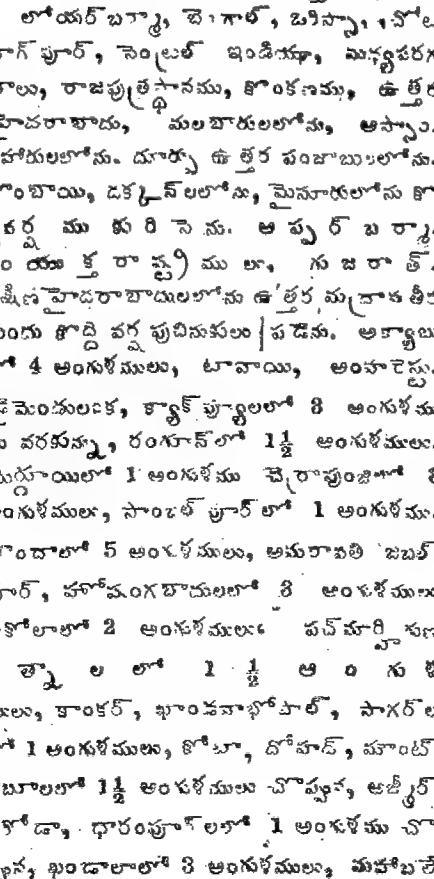 లోయర్ బర్మా, బెంగాల్, ఒరిస్సా,
నాగ్ పూర్, సెంట్రల్ ఇండియా,
రాజపుత్రస్థానము, కొంకణము, ఉత్తర
హైదరాబాదు, మలబారులలోను, ఆస్సాం
దూర్పు ఉత్తర పంజాబులలోను.
బొంబాయి, డక్కన్ లలోను, మైసూరులోను
వర్షము కురిసెను. అప్పర్ బర్మా
యుక్తరాష్ట్రములు, గుజరాత్,
దక్షిణ హైదరాబాదులలోను ఉత్తర మద్రాసు తీర
మందు కొద్ది వర్షపుచినుకులం పడెను. అక్యాబు
లో 4 అంగుళములు, టావాయి, అంహరెస్టు,
క్యాక్ ప్యూలలో 3 అంగుళము
రంగూన్ లో 1½ అంగుళములు.
మెర్గూయిలో 1 అంగుళము చైరాపుంజిలో
అంగుళములు, సాంబల్ పూర్ లో 1 అంగుళము
5 అంగుళములు, అమరావతి జబల్
హోషంగబాదులలో 3 అంగుళములు
అకోలాలో 2 అంగుళములు పచ్ మార్హి
త్నాలలో 1½ అంగుళ
కాంకర్, ఖాండవాభోపాల్, సాగర్ ల
లో 1 అంగుళములు, కోటా, దోహద్, మౌంట్
అబూలలో 1½ అంగుళములు చొప్పున, అజ్మీర్
ధారంపూర్ లలో 1 అంగుళము చొ
ప్పున, ఖండాలాలో 3 అంగుళములు, మహాబలే